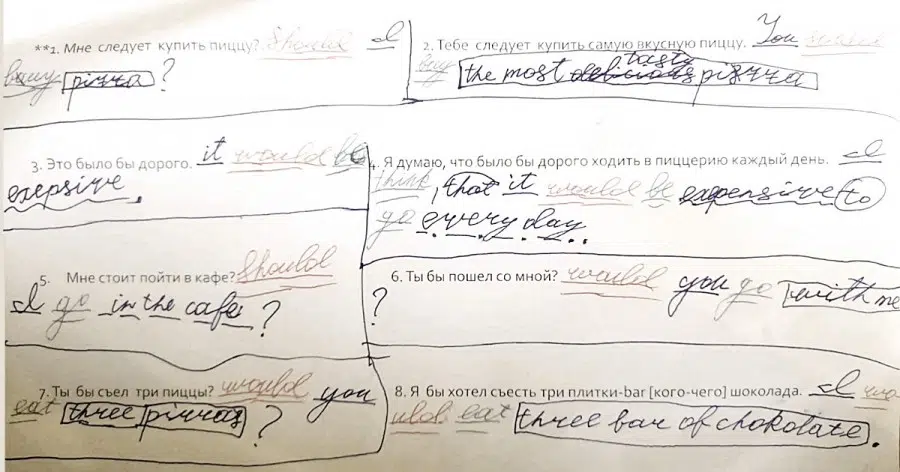 **1. Мне следует купить пиццу? Should I
buuy pizza?
2. Тебе следует купить самую вкусную пиццу. You should
buy the most delicious tasty pizza
3. Это было бы дорого. it would be
exepsive.
4. Я думаю, что было бы дорого ходить в пиццерию каждый день. I
think, that it would be expensive to
go every day.
5. Мне стоит пойти в кафе? Should
I go in the cafe?
6. Ты бы пошел со мной? would you go with me
?
7. Ты бы съел три пиццы? would you
eat three pizzas?
8. Я бы хотел съесть три плитки-bar [кого-чего] шоколада. I wo
uld eat three bar of chokolate.